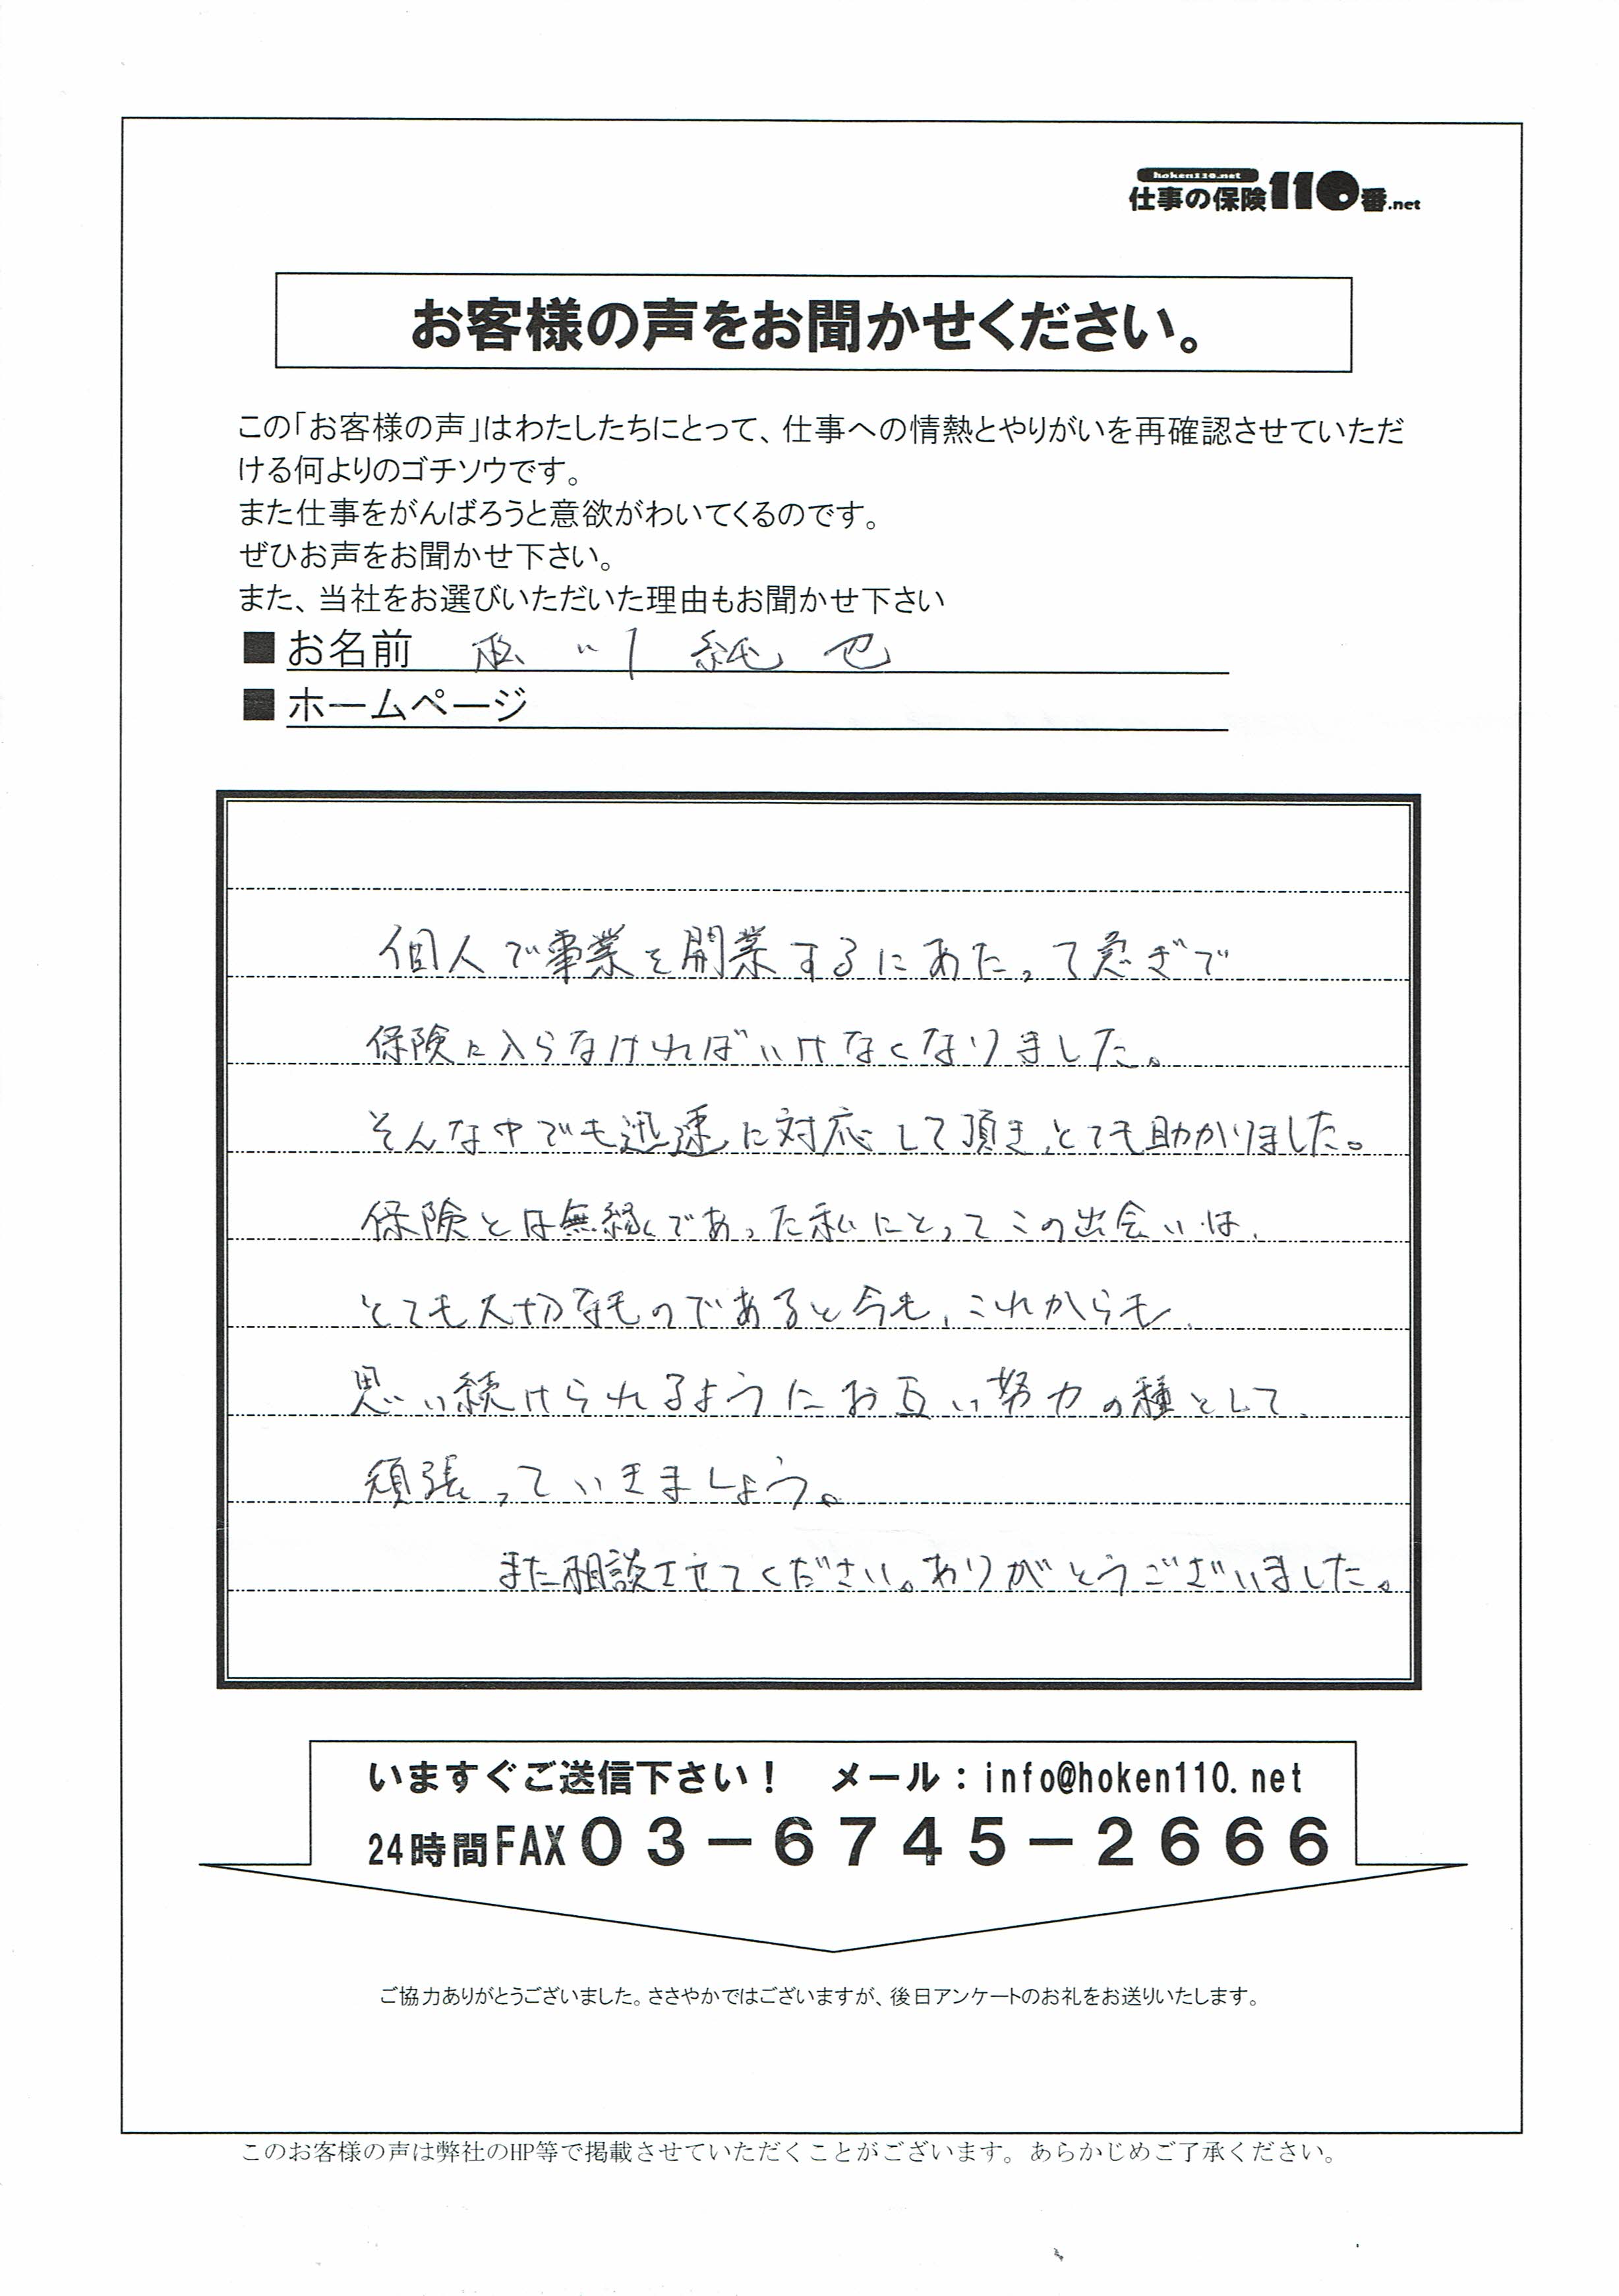 hoken110.net
仕事の保険110番.net
お客様の声をお聞かせください。
この「お客様の声」はわたしたちにとって、仕事への情熱とやりがいを再確認させていただ
ける何よりのゴチソウです。
また仕事をがんばろうと意欲がわいてくるのです。
ぜひお声をお聞かせ下さい。
また、当社をお選びいただいた理由もお聞かせ下さい
■お名前 川 純也
■ホームページ
個人で事業を開業するにあたって急ぎで
保険に入らなければいけなくなりました。
そんな中でも迅速に対応して頂き、とても助かりました。
保険とは無縁であった私にとってこの出会いは、
とても大切なものであると今も、これからも、
思い続けられるようにお互い努力の種として、
頑張っていきましょう。
また相談させてください。ありがとうございました。
いますぐご送信下さい！ メール：info@hoken110.net
24時間FAX０３－６７４５－２６６６
ご協力ありがとうございました。ささやかではございますが、後日アンケートのお礼をお送りいたします。
このお客様の声は弊社のHP等で掲載させていただくことがございます。あらかじめご了承ください。